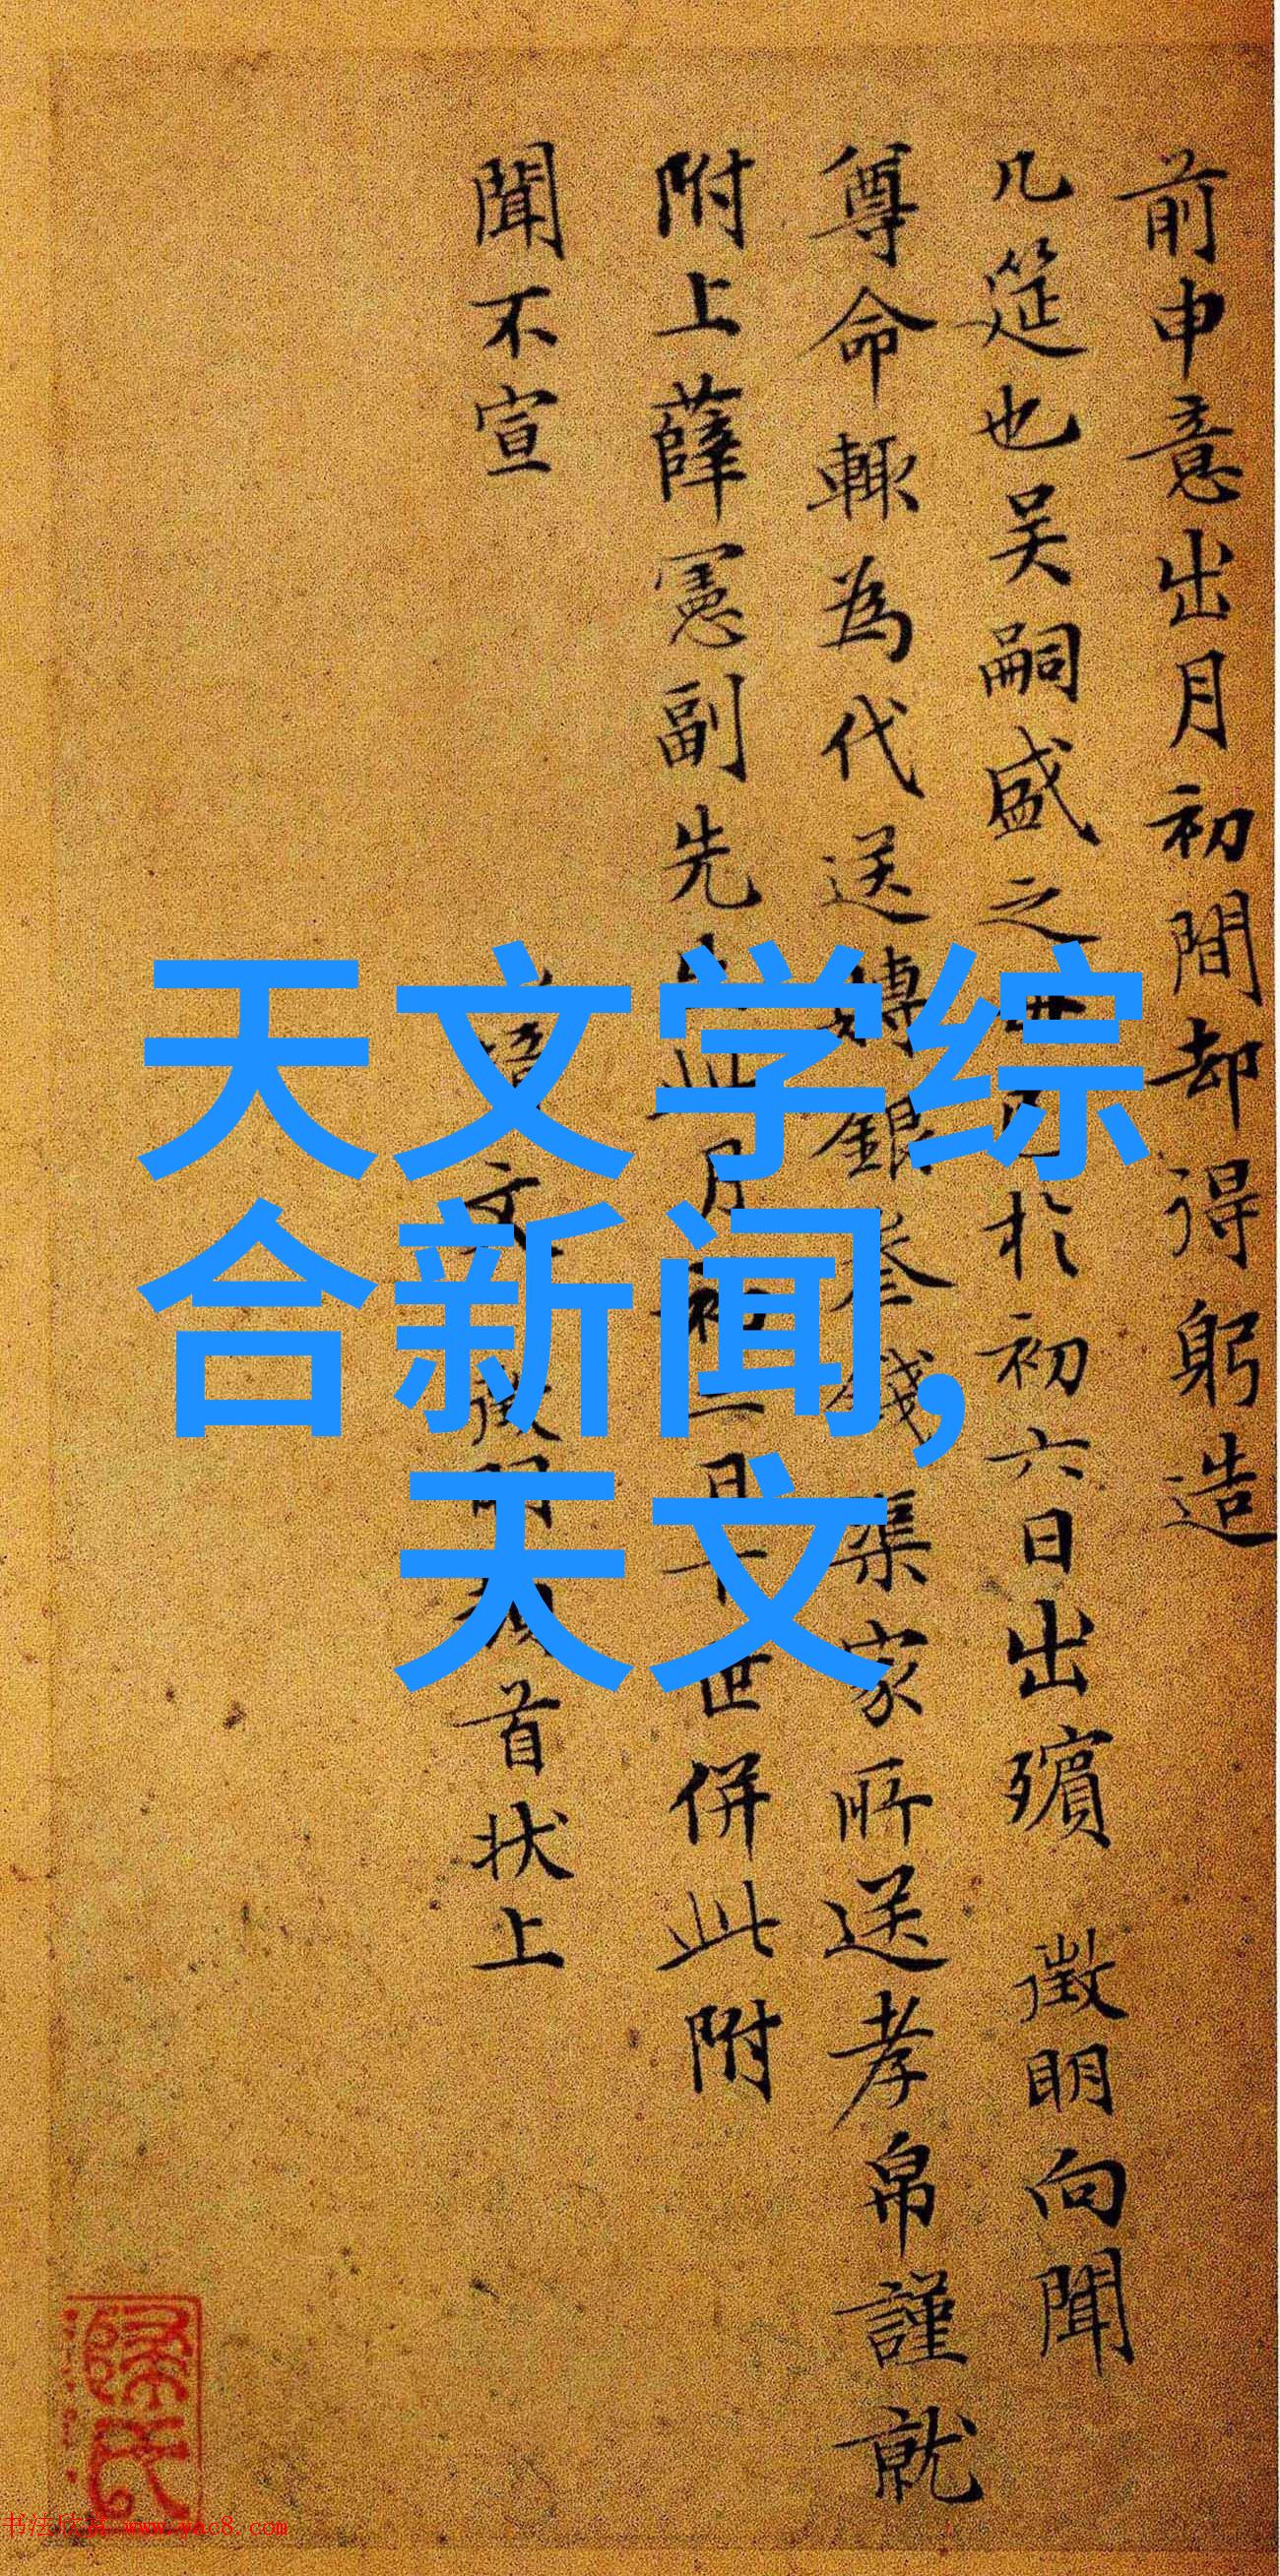 前申意出月初間却得躬造
几筵也吴嗣盛之 於初六日出殯 徵明向聞
尊命輙為代送 銀叁錢 渠家所送孝帛謹就
附上薛憲副先 月初 日 併此附
聞不宣
文徵明 首状上
天文学综
合新闻,
天文
书法欣赏 www.yac8.com